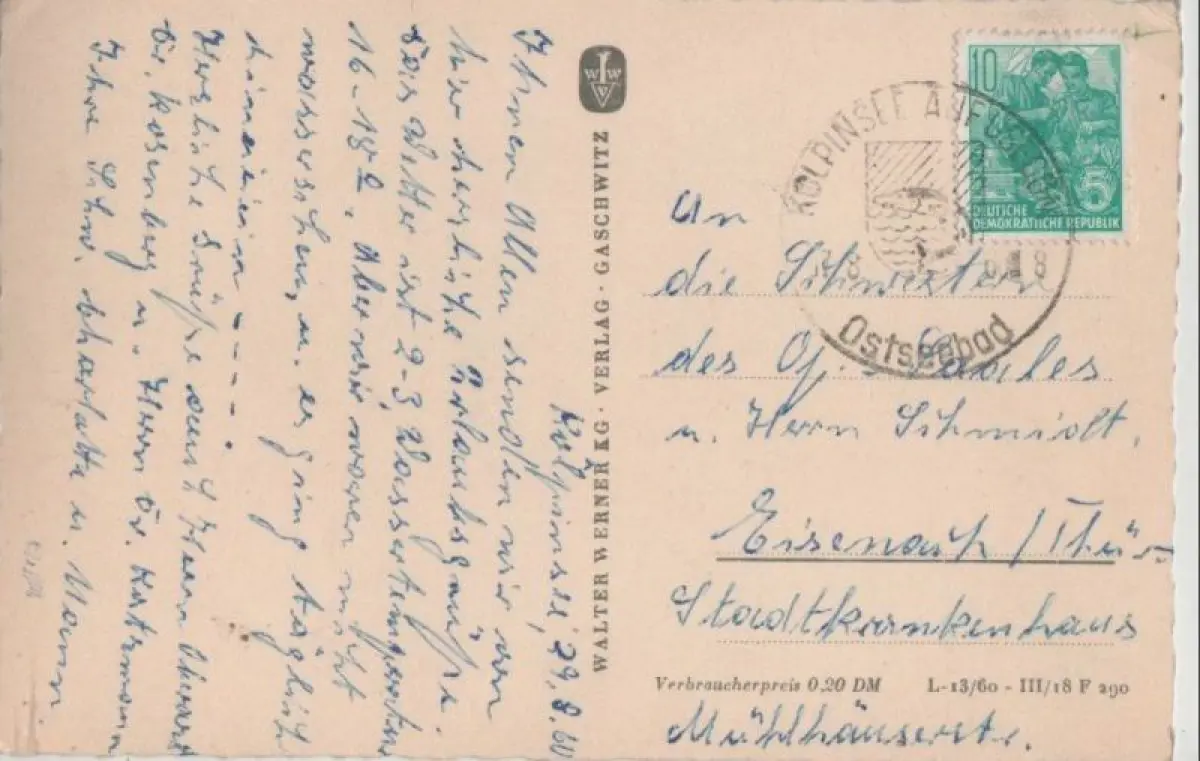 Kölpinsee, 29.8.60
Ihnen Allen senden wir von
hier herzliche Urlaubsgrüße.
Das Wetter ist 2-3, Wassertemperatur
16-18°. Aber wir waren nicht
wasserscheu, u. es ging täglich
hinein
Herzliche Grüße auch Herrn Oberarzt
Dr. Rosenberg u. Herrn Dr.
Ihre Schw. Charlotte u. Mann.
WALTER WERNER KG · VERLAG · GASCHWITZ
WWV
10
5
DEUTSCHE
DEMOKRATISCHE REPUBLIK
KÖLPINSEE AUF USEDOM
Ostseebad
An
die Schwestern
des Op.-Saales
u. Herrn Schmidt.
Eisenach/Thür
Stadtkrankenhaus
Verbraucherpreis 0,20 DM L-13/60 - III/18 F 290
Mühlhäuserstr.